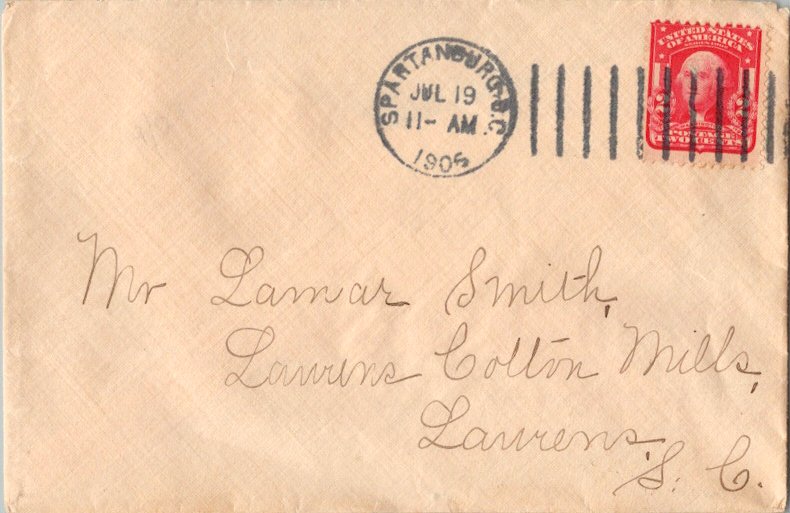 SPARTANBURG, S.C.
JUL 19
11- AM
1905
UNITED STATES
OF AMERICA
POSTAGE
TWO CENTS
Mr Lamar Smith,
Laurens Cotton Mills,
Laurens
S. C.